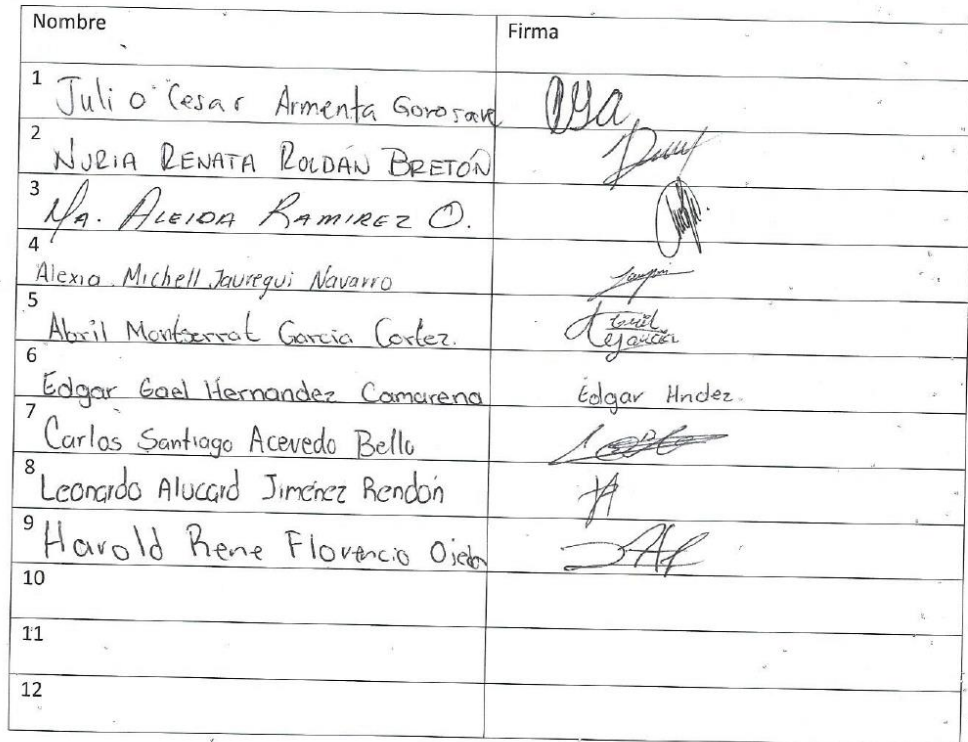 Nombre Firma
1 Julio Cesar Armenta Gorosave
2 NURIA RENATA ROLDÁN BRETÓN
3 MA. ALEIDA RAMIREZ O.
4 Alexia Michell Jauregui Navarro
5 Abril Montserrat Garcia Cortez.
6 Edgar Gael Hernandez Camarena Edgar Hndez.
7 Carlos Santiago Acevedo Bello
8 Leonardo Alucard Jiménez Rendón
9 Harold Rene Florencio Ojeda
10
11
12